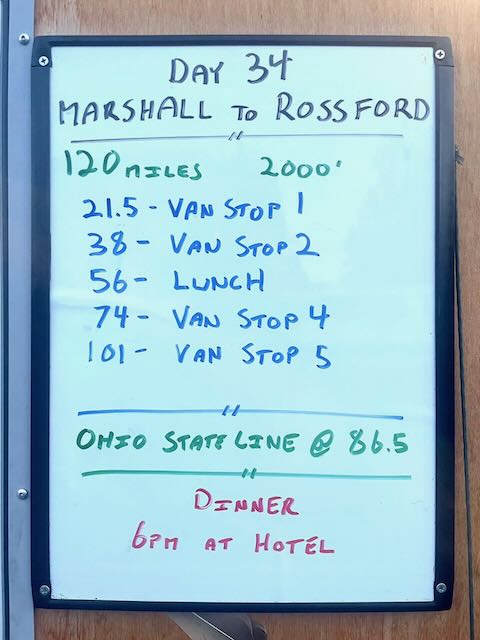 DAY 34
MARSHALL TO ROSSFORD
120 MILES 2000'
21.5 - VAN STOP 1
38 - VAN STOP 2
56 - LUNCH
74 - VAN STOP 4
101 - VAN STOP 5
OHIO STATE LINE @ 86.5
DINNER
6PM AT HOTEL